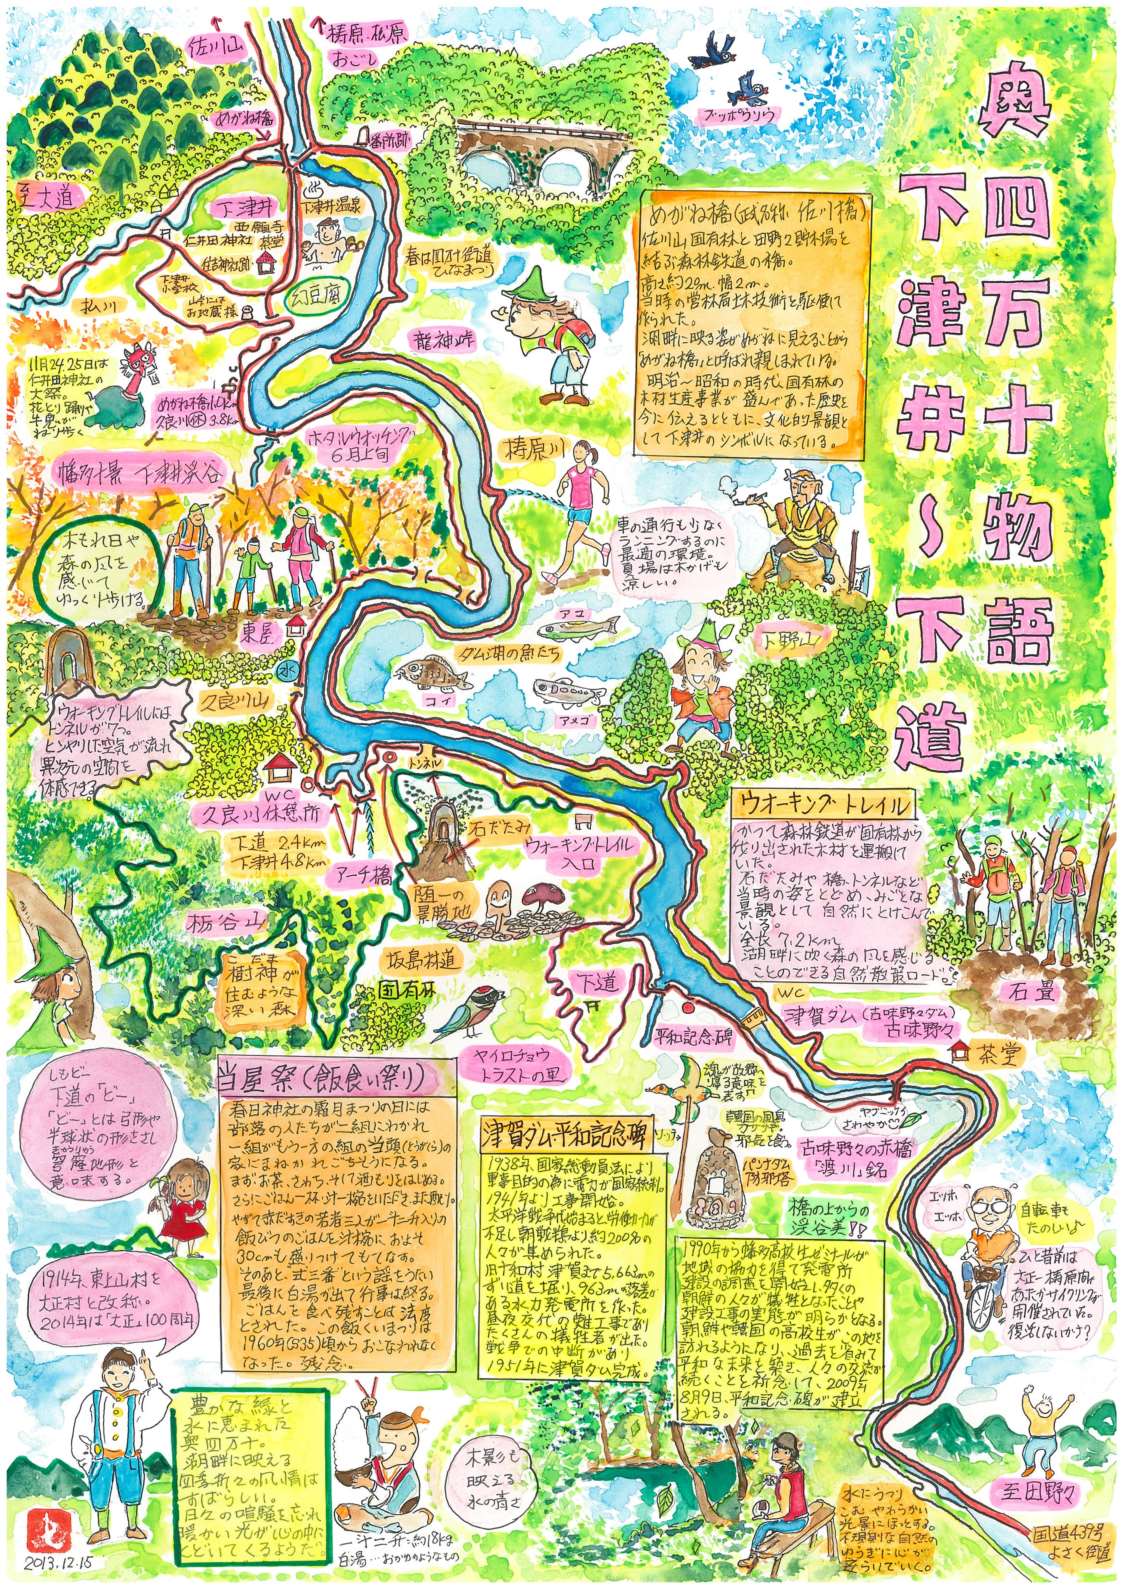 奥四万十物語
下津井～下道
佐川山
梼原・松原
おごし
めがね橋
番所跡
ブッポウソウ
至大道
下津井
下津井温泉
西願寺
仁井田神社
茶堂
住吉神社跡
下津井
小学校
お地蔵様
幻豆腐
払川
春は四万十街道
ひなまつり
龍神峠
めがね橋(正式名称 佐川橋)
佐川山国有林と田野々貯木場を
結ぶ森林鉄道の橋。
当時の営林局土木技術を駆使して
作られた。
湖畔に映る姿がめがねに見えることから
「めがね橋」と呼ばれ親しまれている。
明治～昭和の時代、国有林の
木材生産事業が盛んであった歴史を
今に伝えるとともに、文化的景観と
して下津井のシンボルになっている。
11月24.25日は
仁井田神社の
大祭。
花とり踊りや
牛鬼が
ねり歩く
久良川 3.8km
ホタルウォッチング
6月上旬
梼原川
幡多十景 下津井渓谷
木もれ日や
森の風を
感じて
ゆっくり歩ける。
車の通行も少なく
ランニングするのに
最適の環境。
夏場は木かげも
涼しい。
東屋
水
アユ
ダム湖の魚たち
コイ
アメゴ
下野山
久良川山
ウォーキングトレイルには
トンネルが7つ。
ヒンヤリした空気が流れ
異次元の空間を
体感できる。
トンネル
WC
久良川休憩所
下道 2.4km
下津井 4.8km
アーチ橋
石だたみ
ウォーキングトレイル
入口
随一の
景勝地
ウォーキングトレイル
かつて森林鉄道が国有林から
伐り出された木材を運搬して
いた。
石だたみや橋、トンネルなど
当時の姿をとどめ、みごとな
景観として自然にとけこんで
いる。
全長7.2km
湖畔に吹く森の風を感じる
ことのできる自然散策ロード。
石畳
栃谷山
こだま
樹神が
住むような
深い森
坂島林道
国有林
下道
平和記念碑
ヤイロチョウ
トラストの里
WC
津賀ダム(古味野々ダム)
古味野々
茶堂
しもどー
下道の「どー」
「どー」とは弓形や
半球状の形をさし
意味する。
当屋祭(飯食い祭り)
春日神社の霜月まつりの日には
部落の人たちが二組にわかれ
一組がもう一方の組の当頭(とうがら)の
家にまねかれごちそうになる。
まずお茶、とわち、そして酒もりをはじめる。
さらにごはん一杯、汁一椀をいただき、また飲む。
やがて赤だすきの若者三人が一斗二升入りの
飯びつのごはんを汁椀に、およそ
30cmも盛りつけてもてなす。
そのあと、式三番という謡をうたい
最後に白湯が出て行事は終る。
ごはんを食べ残すことは法度
とされた。この飯くいまつりは
1960年(S35)頃からおこなわれなく
なった。残念。
津賀ダム・平和記念碑
1938年、国家総動員法により
軍事目的の為に電力が国家統制。
1941年より工事開始。
太平洋戦争が始まると、労働力が
不足し朝鮮親より約200名の
人々が集められた。
旧十和村津賀まで5,663mの
ずい道を掘り、96.3mの落差が
ある水力発電所を作った。
昼夜交代の難工事であり
たくさんの犠牲者が出た。
戦争での中断があり
1951年に津賀ダム完成。
ソッテ
パンナダム
防邪塔
ヤブニッケイ
さわやか♡
古味野々の赤橋
「渡川」銘
橋の上からの
渓谷美!!
1990年から幡多高校生ゼミナールが
地域の協力を得て発電所
建設の調査を開始し、多くの
朝鮮の人々が犠牲となったことや
建設工事の実態が明らかなる。
朝鮮や韓国の高校生が、この地を
訪れるようになり、過去を省みて
平和な未来を築き、人々の交流が
続くことを祈念して、2009年
8月9日、平和記念碑が建立
される。
エッホ
エッホ
自転車も
たのしい♪
ひと昔前は
大正―梼原間
サイクリングが
開催されていた。
復活しないかナ?
1914年、東上山村を
大正村と改称。
2014年は「大正」100周年
豊かな緑と
水に恵まれた
奥四万十。
湖畔に映える
四季折々の風情は
すばらしい。
日々の喧騒を忘れ
暖かい光が心の中に
とどいてくるようだ。
一斗二升…約18kg
白湯…おかゆのようなもの
木影も
映える
水の青さ
水にうつり
こむやわらかい
光景にほっとする。
不思議な自然の
ゆらぎに心が
安らいでいく。
至田野々
国道439号
よさく街道
2013.12.15